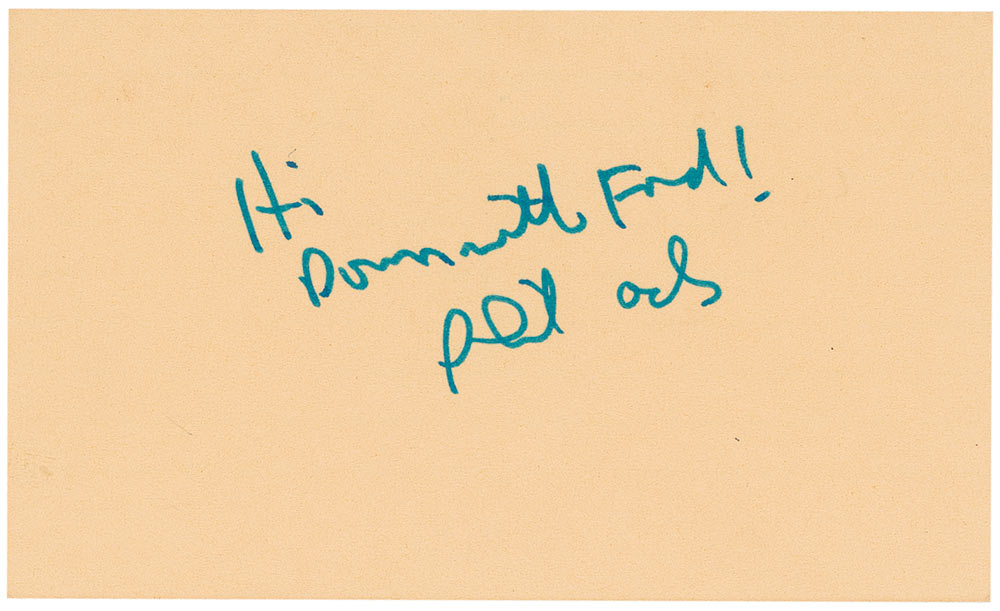 Hi
Down with Ford!
Phil Ochs